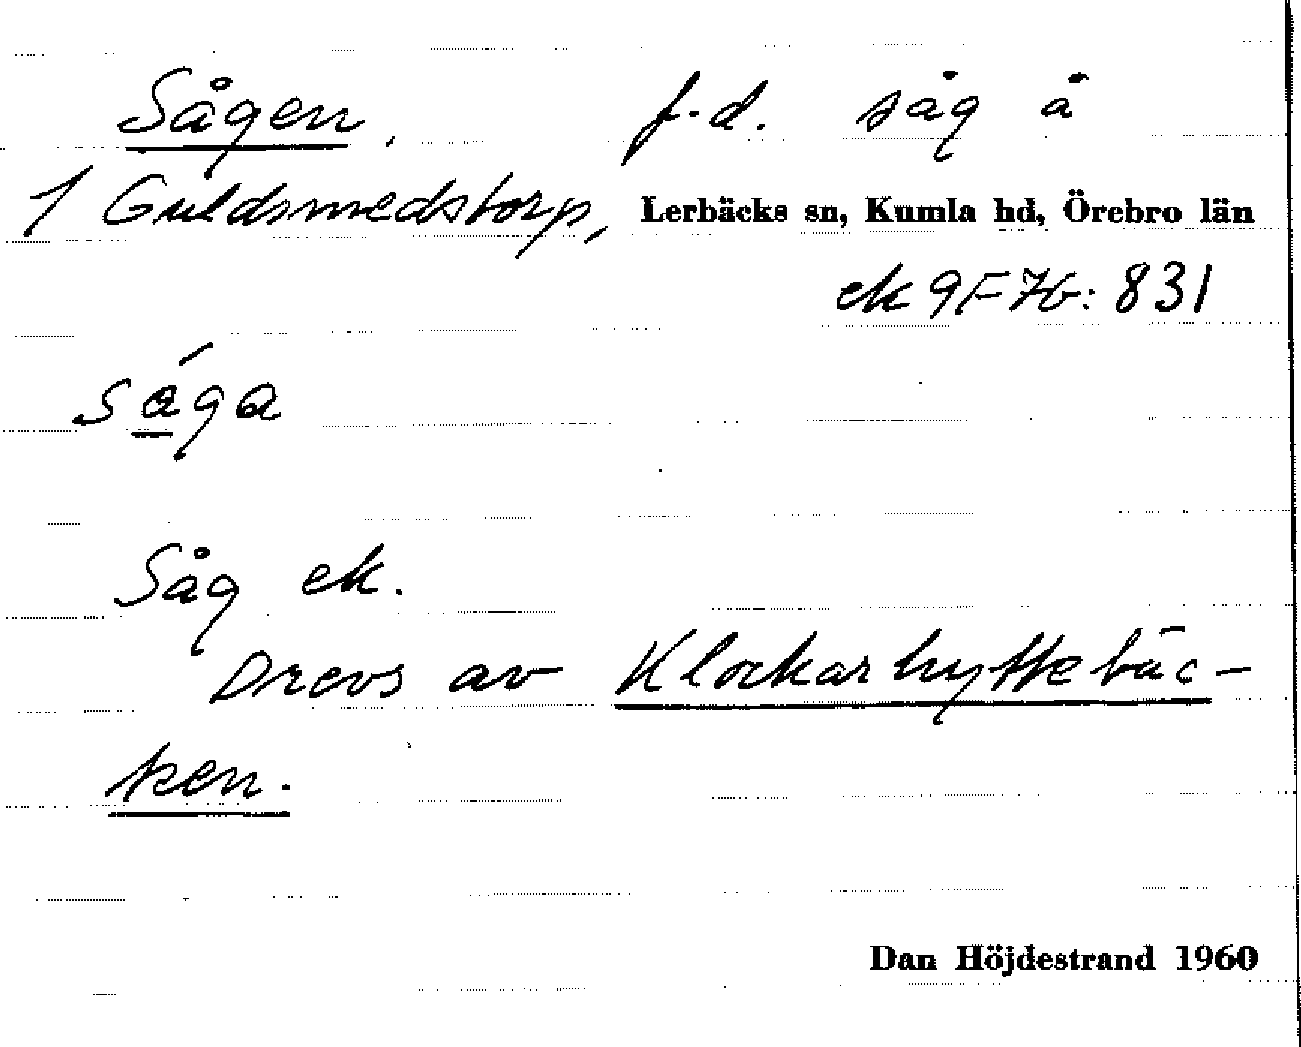 Sågen, f.d. såg å
1 Guldsmedstorp, Lerbäcks sn, Kumla hd, Örebro län
ek 9F7G: 831
sága
Såg ek.
Drevs av Klockarhyttebäc-
ken.
Dan Höjdestrand 1960